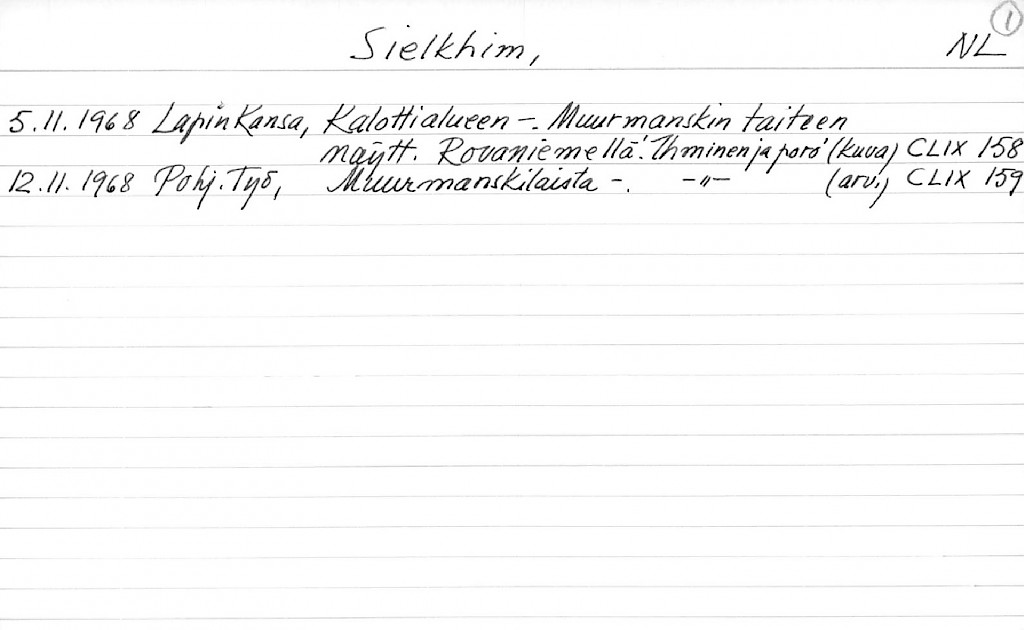 1
Sielkhim, NL
5.11.1968 Lapin Kansa, Kalottialueen -. Muurmanskin taiteen
näytt. Rovaniemellä. 'Ihminen ja poro' (kuva) CLIX 158
12.11.1968 Pohj. Työ, Muurmanskilaista -. -"- (arv.) CLIX 159